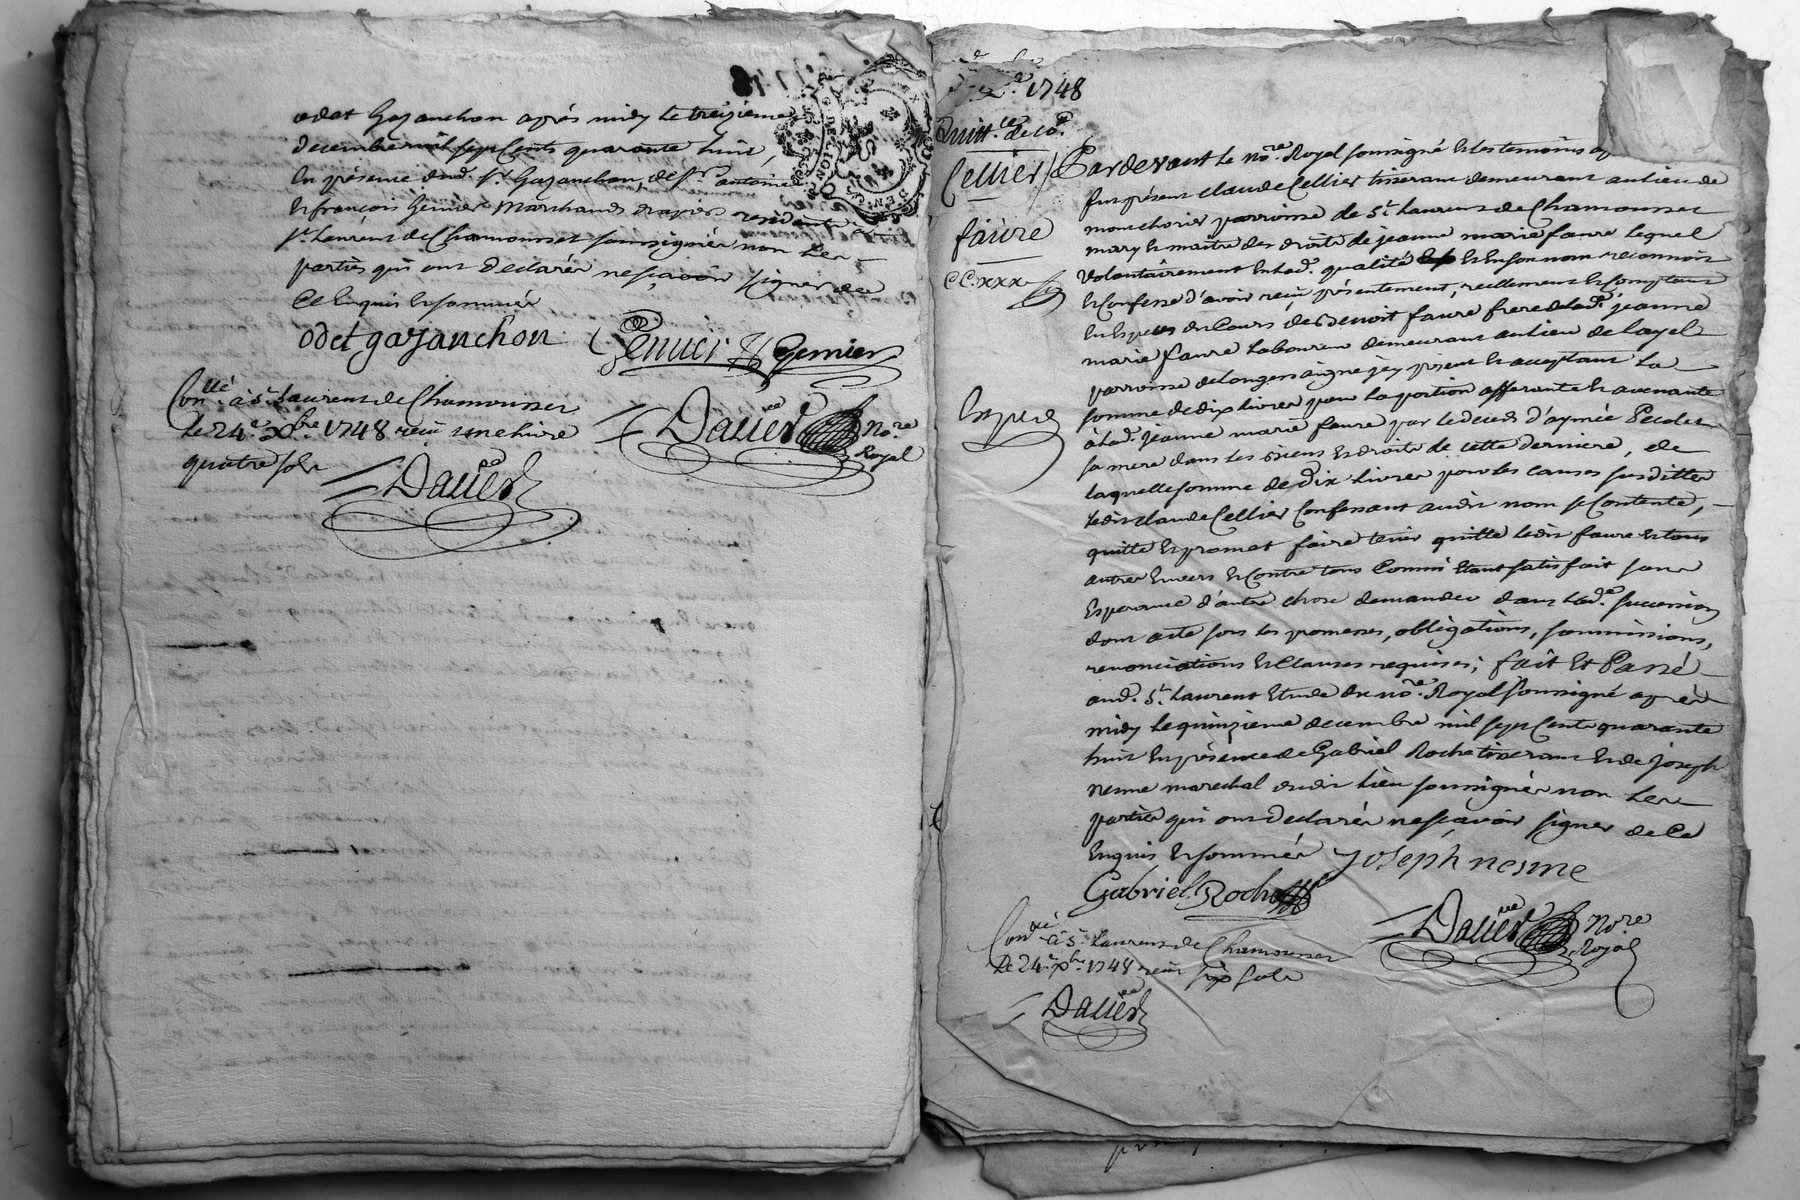 odet Gazanchon après midy le treizieme
decembre mil sept Cents quarante huit,
En présence dud. sr. Gazanchon, de sr. antoine
Et françois Genier Marchands drapiers residants
St. Laurent de Chamousset soussignés non Les
parties qui ont Declarés nesçavoir signer de
Ce Enquis Et sommés
odet gazanchon Genier Genier
Conllé. à St. Laurent de Chamousset
Le 24e. Xbre 1748 reçu une livre
quatre sols
Dauier No.re
Royal
Dauier
GEN. DE LION
1748
Quitt.ce de 10#
Cellier/
faure
CC.xxx
Exped
Pardevant Le no.re Royal soussigné Et les temoins
fut présent Claude Cellier tisserant demeurant au lieu de
montchorier parroisse de St. Laurent de Chamousset
mary Et maitre des droits de jeanne marie faure lequel
Volontairement En lad. qualité Et En son nom reconnoit
Et Confesse d'avoir reçu présentement, reellement Et Comptant
En Especes du Cours de Benoit faure frere de lad. jeanne
marie faure Laboureur demeurant au lieu de Layel
parroisse de Longessaigne jcy présent Et acceptant La
somme de dix Livres pour La portion afferante Et avenante
à lad. jeanne marie faure par le deceds d'aymée Pecolet
sa mere dans Les biens Et droits de cette derniere, de
laquelle somme de Dix Livres pour les causes susdittes
ledit Claude Cellier Confessant audit nom se Contente,
quitte Et promet faire tenir quitte ledit faure Et tous
autres Envers Et Contre tous Comme Etant satisfait sans
Esperance d'autre chose demander dans lad. succession
dont acte sous les promesses, obligations, soumissions,
renonciations Et Clauses requises; fait Et Passé
aud. St. Laurent Etude du no.re Royal soussigné après
midy Le quinzieme decembre mil sept Cents quarante
huit En présence de Gabriel Roche tisserant Et de Joseph
nesme marechal dudit Lieu soussignés non Les
parties qui ont Declarés nesçavoir signer de Ce
Enquis Et sommés joseph nesme
Gabriel Roche
Conllé à St. Laurent de Chamousset
Le 24e. Xbre. 1748 reçu six sols
Dauier No.re
Royal
Dauier